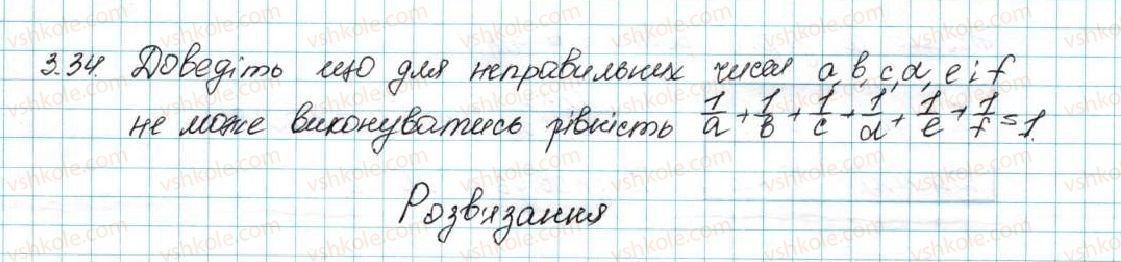 3.34. Доведіть що для неправильних чисел a, b, c, d, e i f
не може виконуватись рівність 1/a + 1/b + 1/c + 1/d + 1/e + 1/f = 1.
Розв'язання